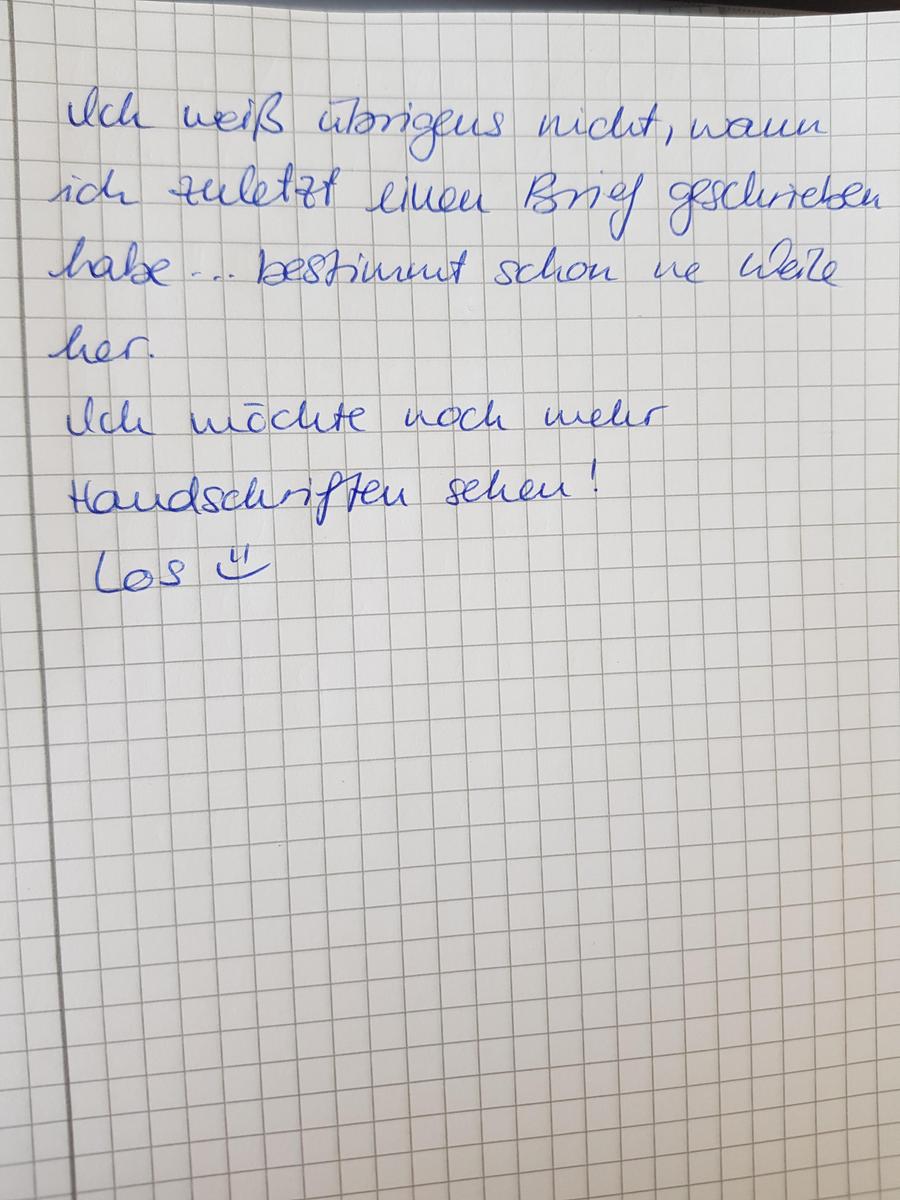 Ich weiß übrigens nicht, wann
ich zuletzt einen Brief geschrieben
habe ... bestimmt schon ne Weile
her.
Ich möchte noch mehr
Handschriften sehen!
Los